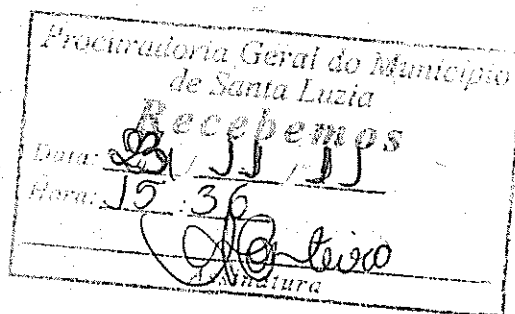 Procuradoria Geral do Município
de Santa Luzia
Recebemos
Data: / 11 / 11
Hora: 15 : 36
Monteiro
Assinatura